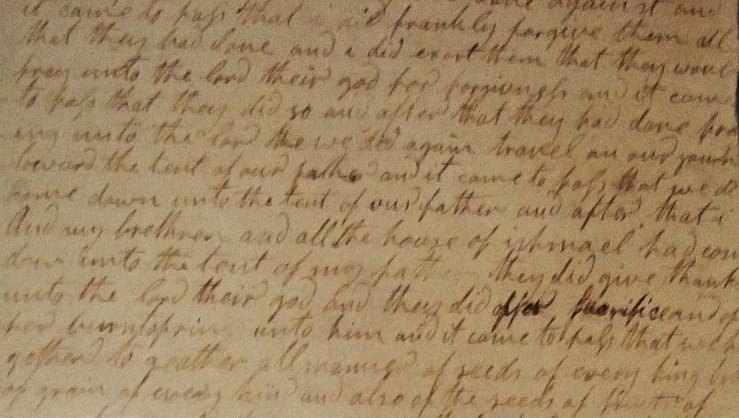 done against and
it came to pass that i did frankly forgive them all
that they had done and i did exort them that they woul
pray unto the lord their god for forgivness and it came
to pass that they did so and after that they had done pra
ing unto the lord the we did again travel on our journ
toward the tent of our father and it came to pass that we di
came down unto the tent of our father and after that i
And my brethren and all the house of ishmael had com
down unto the tent of my fath they did give thank
unto the lord their god and they did offer sacrifise and of
her burntofring unto him and it came to pass that we h
gethered to geather all manner of seeds of every king bo
of grain of every kind and also of the seeds of of